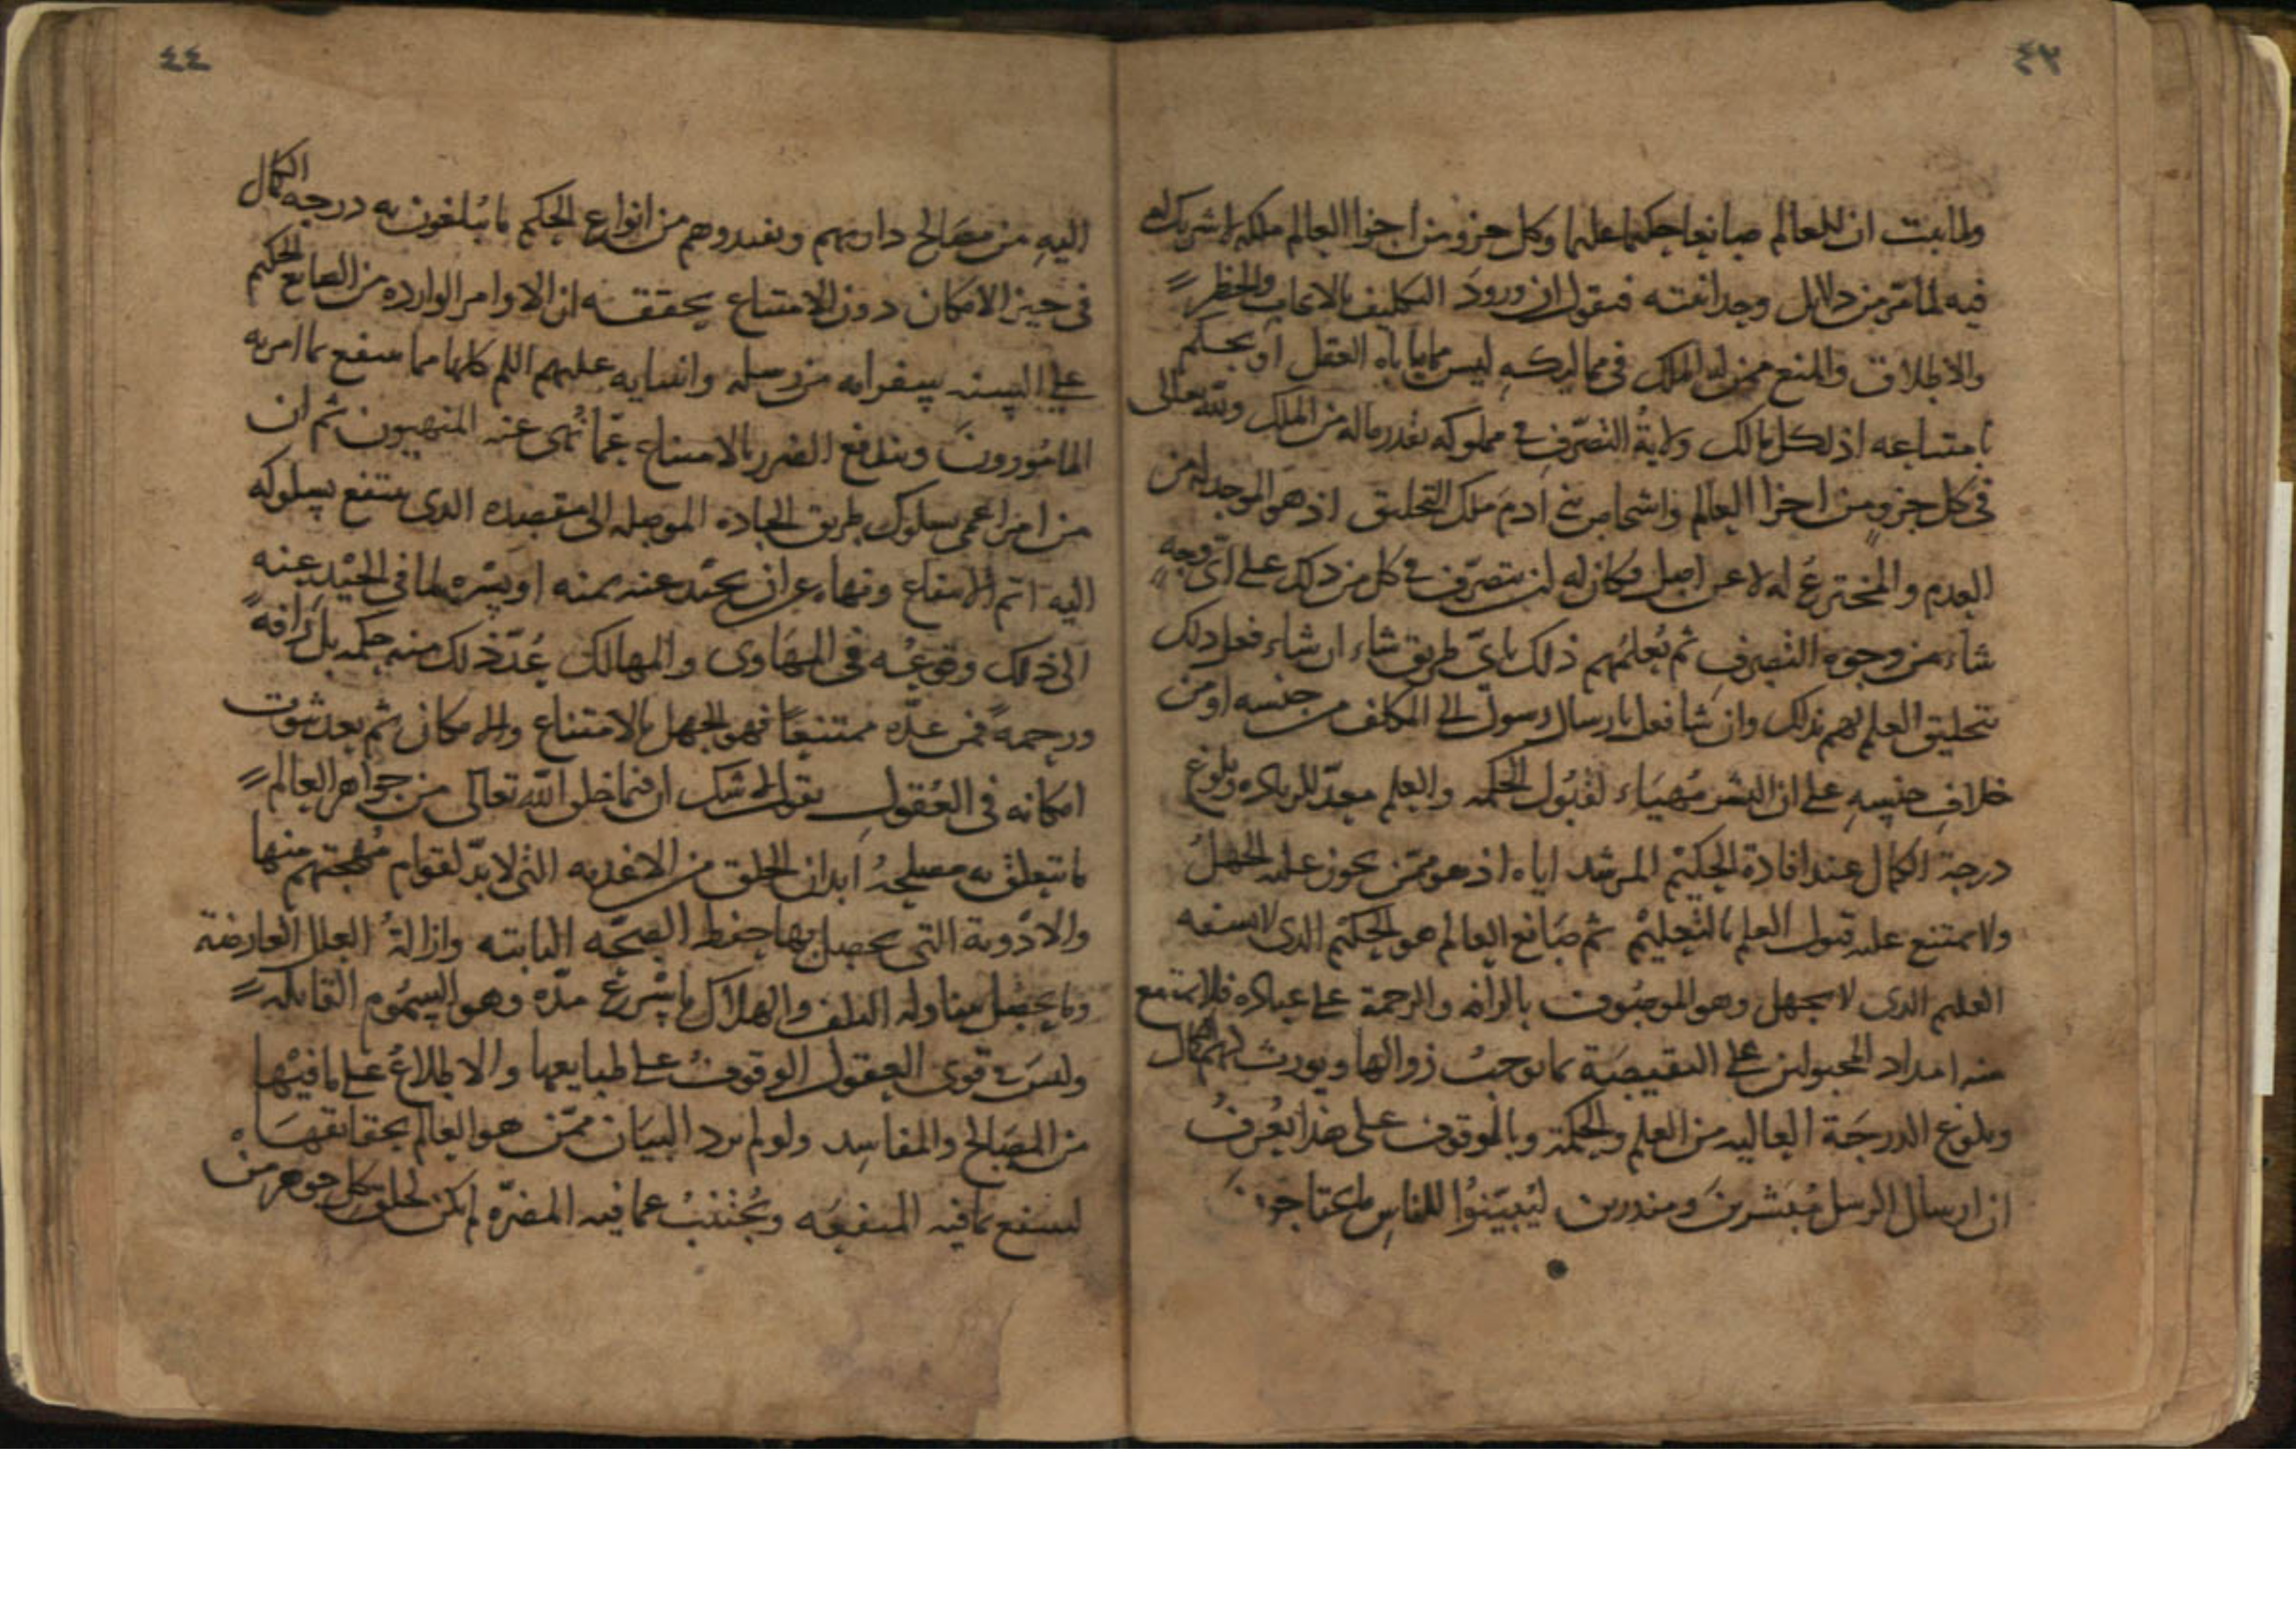 ٤٣
ولما ثبت ان للعالم صانعا حكيما عليما وكل جزو من اجزا العالم ملكه لا شريك له
فيه لما مر من دلايل وحدانيته فنقول ان ورود التكليف بالايجاب والحظر
والاطلاق والمنع ممن له الملك في مماليكه ليس مما ياباه العقل او يحكم
بامتناعه اذ لكل مالك ولاية التصرف في مملوكه بقدر ماله من الملك ولله تعالى
في كل جزو من اجزا العالم واشخاص بني ادم ملك التخليق اذ هو الموجد له من
العدم والمخترع له لا عن اصل فكان له ان يتصرف في كل من ذلك على اي وجه
شاء من وجوه التصرف ثم يعلمهم ذلك باي طريق شاء ان شاء فعل ذلك
بتخليق العلم لهم بذلك وان شا فعل بارسال رسول الى المكلف من جنسه او من
خلاف جنسه على ان البشر مهياء لقبول الحكمه والعلم معد للزياده وبلوغ
درجة الكمال عند افادة الحكيم المرشد اياه اذ هو ممن يجوز عليه الجهل
ولا يمتنع عليه قبول العلم بالتعليم ثم صانع العالم هو الحكيم الذى لا يسفه
العليم الذى لا يجهل وهو الموصوف بالرافه والرحمة على عباده فلا يمتنع
منه امداد المجبولين على النقيصة بما يوجب زوالها ويورث لهم الكمال
وبلوغ الدرجة العاليه من العلم والحكمة وبالوقوف على هذا يعرف
ان ارسال الرسل مبشرين ومنذرين ليبينوا للناس ما يحتاجون
٤٤
اليه من مصالح داريهم ويفيدوهم من انواع الحكم ما يبلغون به درجه الكمال
في حيز الامكان دون الامتناع يحققه ان الاوامر الوارده من الصانع الحكيم
على السنه سفرايه من رسله وانبيايه عليهم السلم كلها مما ينتفع بما امر به
المامورون ويندفع الضرر بالامتناع عما نهى عنه المنهيون ثم ان
من امر اعمى بسلوك طريق الجاده الموصله الى مقصده الذى ينتفع بسلوكه
اليه اتم الانتفاع ونهاه عن ان يحيد عنه يمنه او يسره لما في الحيد عنه
الى ذلك وقوعه في المهاوى والمهالك عد ذلك منه حكمه بل رافة
ورحمة فمن عده ممتنعا فهو الجهل بالامتناع والامكان ثم بعد ثبوت
امكانه في العقول نقول لا شك ان فيما خلق الله تعالى من جواهر العالم
ما يتعلق به مصلحة ابدان الخلق من الاغذيه التي لا بد لقوام مهجتهم منها
والادوية التي يحصل بها حفظ الصحه الثابته وازالة العلل العارضة
وما يحصل بتناوله التلف والهلاك باسرع مده وهو السموم القاتله
وليس في قوى العقول الوقوف على طبايعها والاطلاع على ما فيها
من المصالح والمفاسد ولو لم يرد البيان ممن هو العالم بحقايقها
لينتفع بما فيه المنفعه ويجتنب عما فيه المضره لم يكن لخلق كل جوهر من